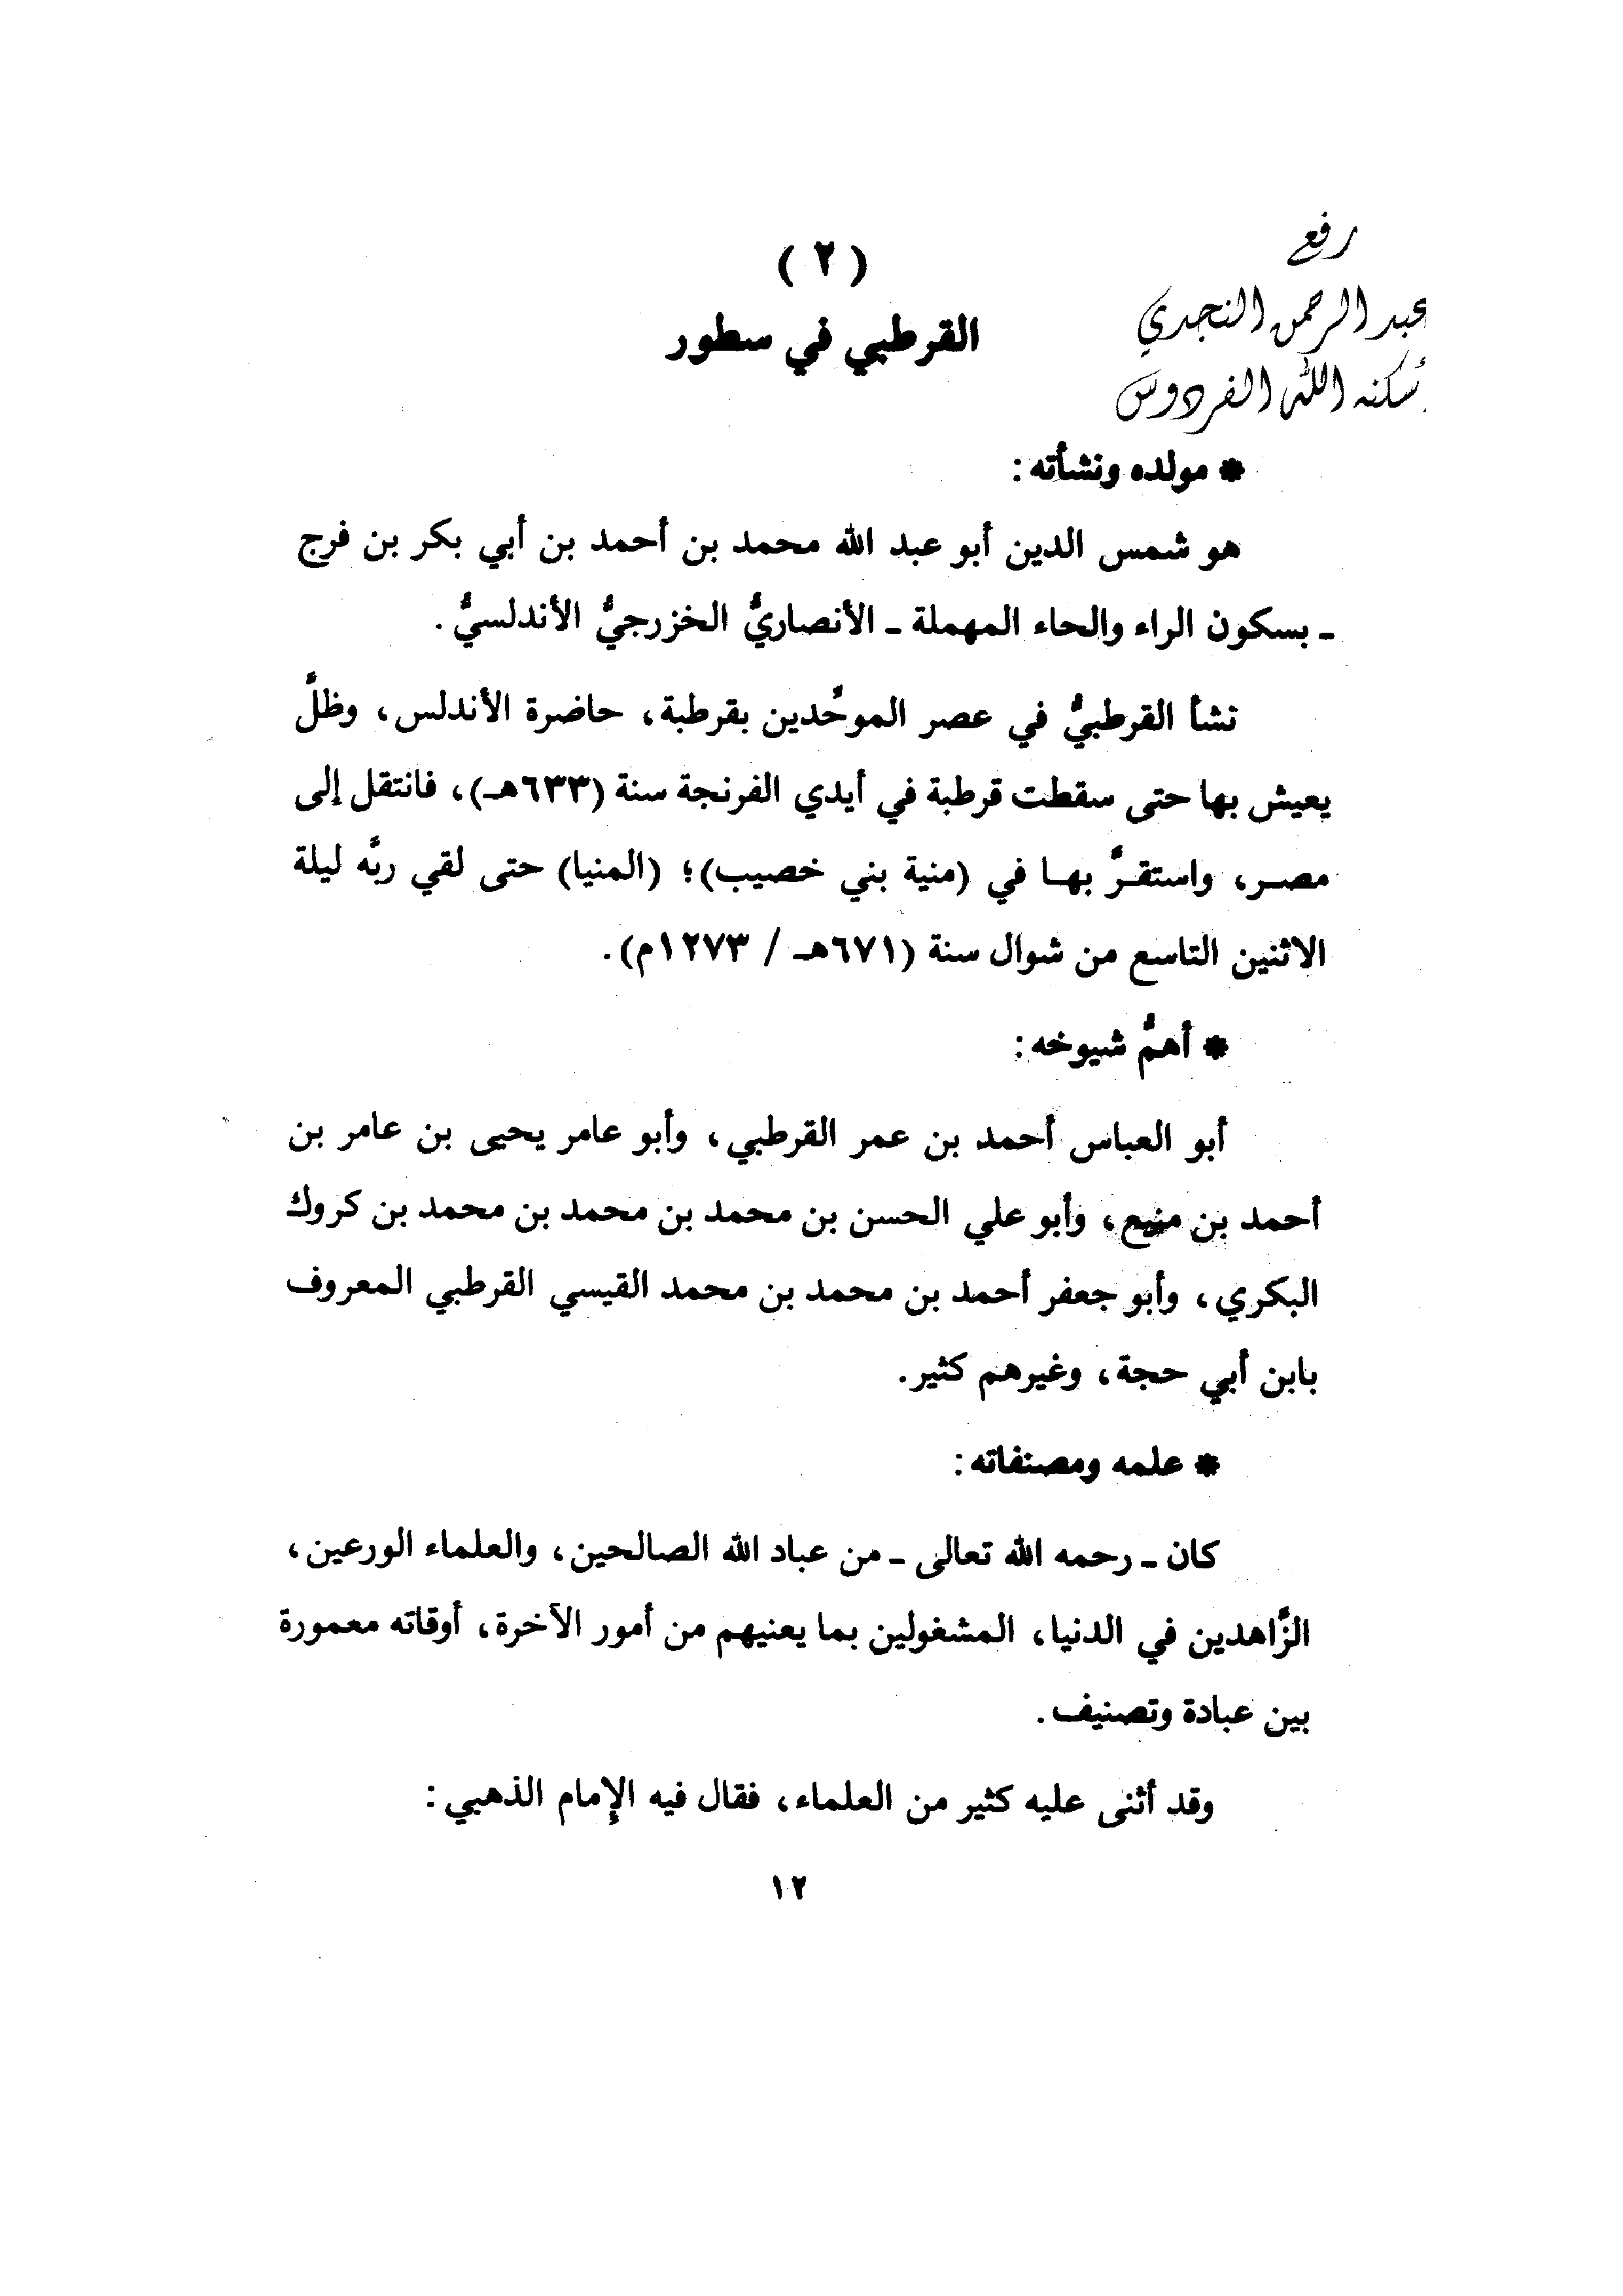 رفع
عبد الرحمن النجدي
أسكنه الله الفردوس
( ٢ )
القرطبي في سطور
* مولده ونشأته:
هو شمس الدين أبو عبد الله محمد بن أحمد بن أبي بكر بن فرج
ـ بسكون الراء والحاء المهملة ـ الأنصاريُّ الخزرجيُّ الأندلسيُّ.
نشأ القرطبيُّ في عصر الموحِّدين بقرطبة، حاضرة الأندلس، وظلَّ
يعيش بها حتى سقطت قرطبة في أيدي الفرنجة سنة (٦٣٣هـ)، فانتقل إلى
مصـر، واستقـرَّ بهـا في (منية بني خصيب)؛ (المنيا) حتى لقي ربَّه ليلة
الاثنين التاسع من شوال سنة (٦٧١هـ / ١٢٧٣م).
* أهمُّ شيوخه:
أبو العباس أحمد بن عمر القرطبي، وأبو عامر يحيى بن عامر بن
أحمد بن منيع، وأبو علي الحسن بن محمد بن محمد بن محمد بن كروك
البكري، وأبو جعفر أحمد بن محمد بن محمد القيسي القرطبي المعروف
بابن أبي حجة، وغيرهم كثير.
* علمه ومصنفاته:
كان ـ رحمه الله تعالى ـ من عباد الله الصالحين، والعلماء الورعين،
الزَّاهدين في الدنيا، المشغولين بما يعنيهم من أمور الآخرة، أوقاته معمورة
بين عبادة وتصنيف.
وقد أثنى عليه كثير من العلماء، فقال فيه الإمام الذهبي:
١٢